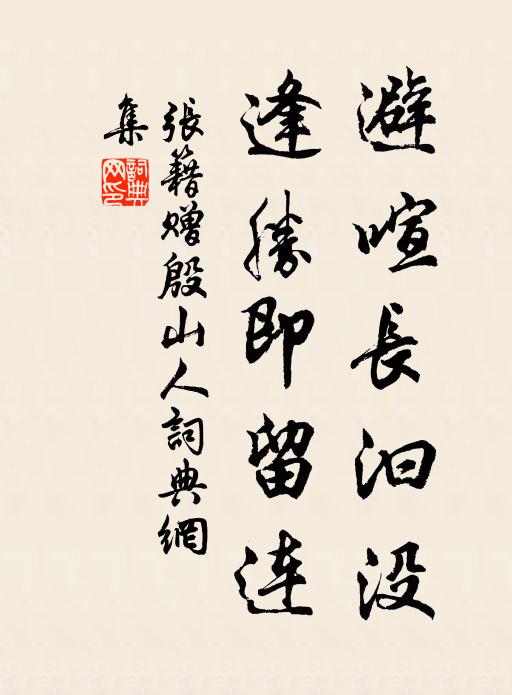 避喧長汩没
逢勝即留連
張籍贈殷山人詞典網
集
詞典
网印